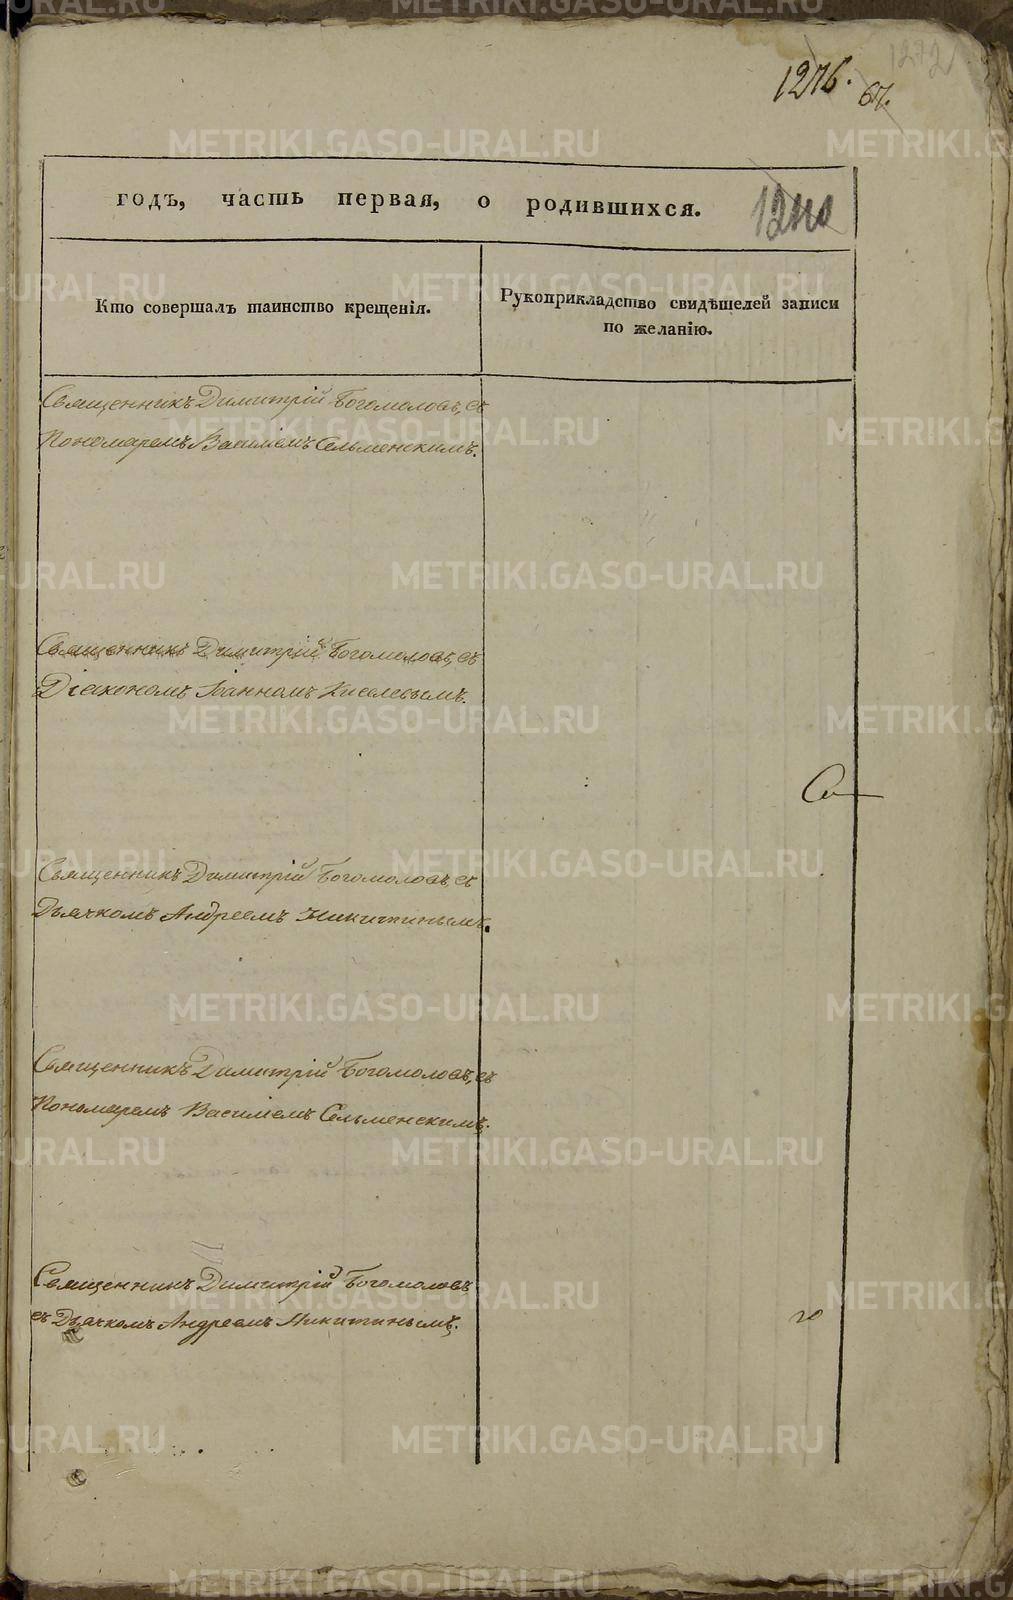 1276.
67.
1272
годъ, часть первая, о родившихся.
Кто совершалъ таинство крещенія.
Рукоприкладство свидѣтелей записи
по желанію.
Священникъ Димитрій Богомоловъ, съ
Пономаремъ Василіемъ Сельменскимъ.
Священникъ Димитрій Богомоловъ, съ
Діакономъ Іоанномъ Киселевымъ.
Священникъ Димитрій Богомоловъ, съ
Дьячкомъ Андреемъ Никитинымъ.
Священникъ Димитрій Богомоловъ, съ
Пономаремъ Василіемъ Сельменскимъ.
Священникъ Димитрій Богомоловъ
съ Дьячкомъ Андреемъ Никитинымъ.
METRIKI.GASO-URAL.RU